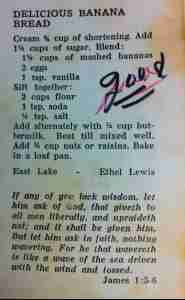 DELICIOUS BANANA
BREAD
Cream ¾ cup of shortening. Add
1½ cups of sugar. Blend:
1½ cups of mashed bananas
2 eggs
1 tsp. vanilla
good
Sift together:
2 cups flour
1 tsp. soda
½ tsp. salt
Add alternately with ½ cup but-
termilk. Best till mixed well.
Add ¾ cup nuts or raisins. Bake
in a loaf pan.
East Lake - Ethel Lewis
If any of you lack wisdom, let
him ask of God, that giveth to
all men liberally, and upraideth
not; and it shall be given him.
But let him ask in faith, nothing
wavering. For he that wavereth
is like a wave of the sea driven
with the wind and tossed.
James 1:5-6